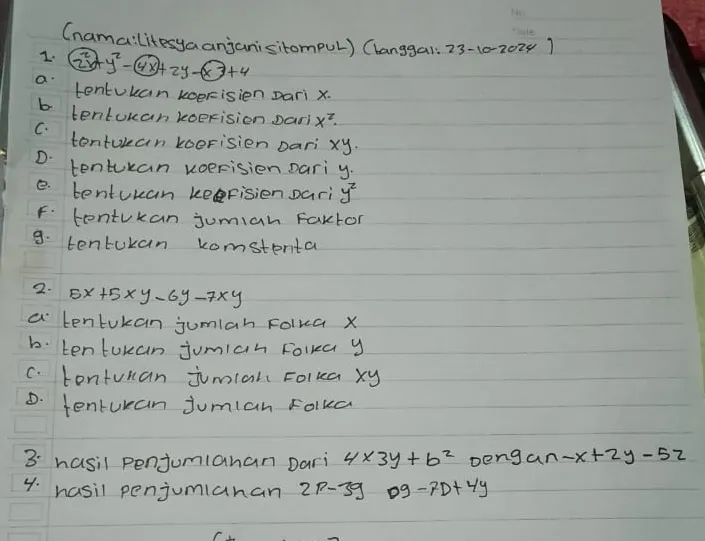 No
Date
(nama:Litesya anjani sitompul) (tanggal: 23-10-2024)
1. 2x²+y²-4x+2y-x²+4
a. tentukan koefisien Dari x.
b. tentukan koefision Dari x².
C. tentukan koefisien Dari xy.
D. tentukan koefisien Dari y.
e. tentukan keefisien Dari y²
F. tentukan jumlah Faktor
g. tentukan komstenta
2. 5x+5xy-6y-7xy
a. tentukan jumlah Folka x
b. tentukan jumlah Folka y
C. tentukan jumlah Folka xy
D. tentukan jumlah Folka
3. hasil penjumlahan Dari 4x3y+b² Dengan -x+2y-5z
4. hasil penjumlahan 2P-3g Dg -7D+4y